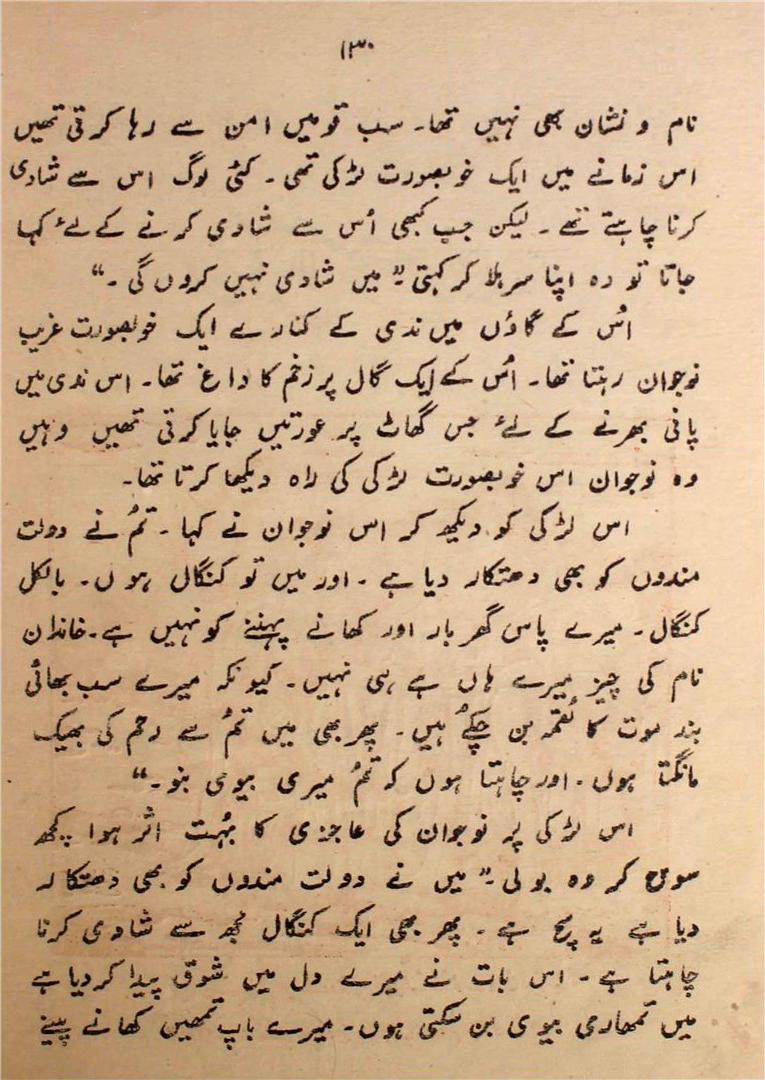 ۱۳۰
نام و نشان بھی نہیں تھا۔ سب قومیں امن سے رہا کرتی تھیں
اس زمانے میں ایک خوبصورت لڑکی تھی۔ کئی لوگ اس سے شادی
کرنا چاہتے تھے۔ لیکن جب کبھی اُس سے شادی کرنے کے لئے کہا
جاتا تو وہ اپنا سر ہلا کر کہتی "میں شادی نہیں کروں گی۔"
اُس کے گاؤں میں ندی کے کنارے ایک خوبصورت غریب
نوجوان رہتا تھا۔ اُس کے ایک گال پر زخم کا داغ تھا۔ اس ندی میں
پانی بھرنے کے لئے جس گھاٹ پر عورتیں جایا کرتی تھیں وہیں
وہ نوجوان اس خوبصورت لڑکی کی راہ دیکھا کرتا تھا۔
اس لڑکی کو دیکھ کر اس نوجوان نے کہا۔ تمُ نے دولت
مندوں کو بھی دھتکار دیا ہے۔ اور میں تو کنگال ہوں۔ بالکل
کنگال۔ میرے پاس گھر بار اور کھانے پہننے کو نہیں ہے۔ خاندان
نام کی چیز میرے ہاں ہے ہی نہیں۔ کیونکہ میرے سب بھائی
بند موت کا لُقمہ بن چکُے ہیں۔ پھر بھی میں تمُ سے رحم کی بھیک
مانگتا ہوں۔ اور چاہتا ہوں کہ تمُ میری بیوی بنو۔"
اس لڑکی پر نوجوان کی عاجزی کا بہُت اثر ہوا۔ کچھ
سوچ کر وہ بولی "میں نے دولت مندوں کو بھی دھتکار
دیا ہے یہ سچ ہے۔ پھر بھی ایک کنگال مجُھ سے شادی کرنا
چاہتا ہے۔ اس بات نے میرے دل میں شوق پیدا کر دیا ہے
میں تمھاری بیوی بن سکتی ہوں۔ میرے باپ تمھیں کھانے پینے